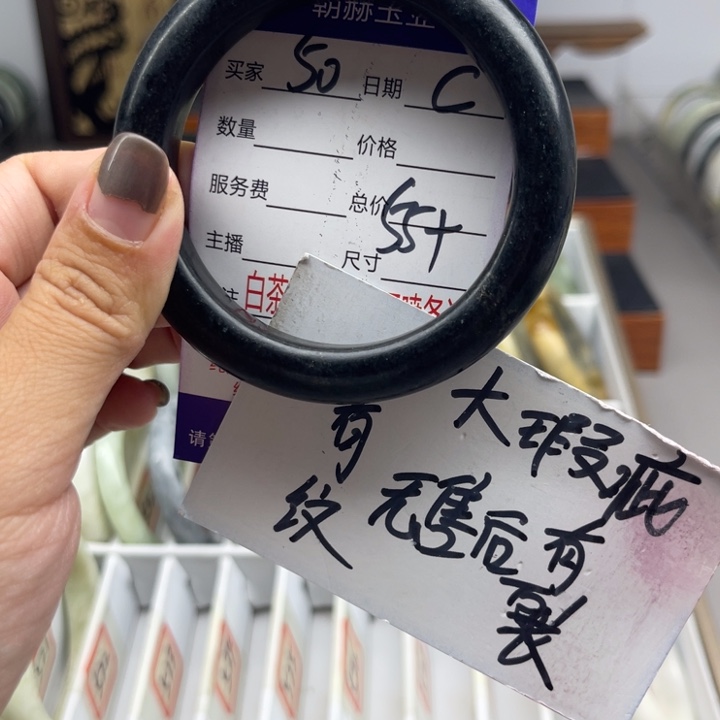 朝赫玉业
买家 50 日期 C
数量 价格
服务费 总价 55+
主播 尺寸
注 白茶
请
大瑕疵
有 无售后有
纹 裂